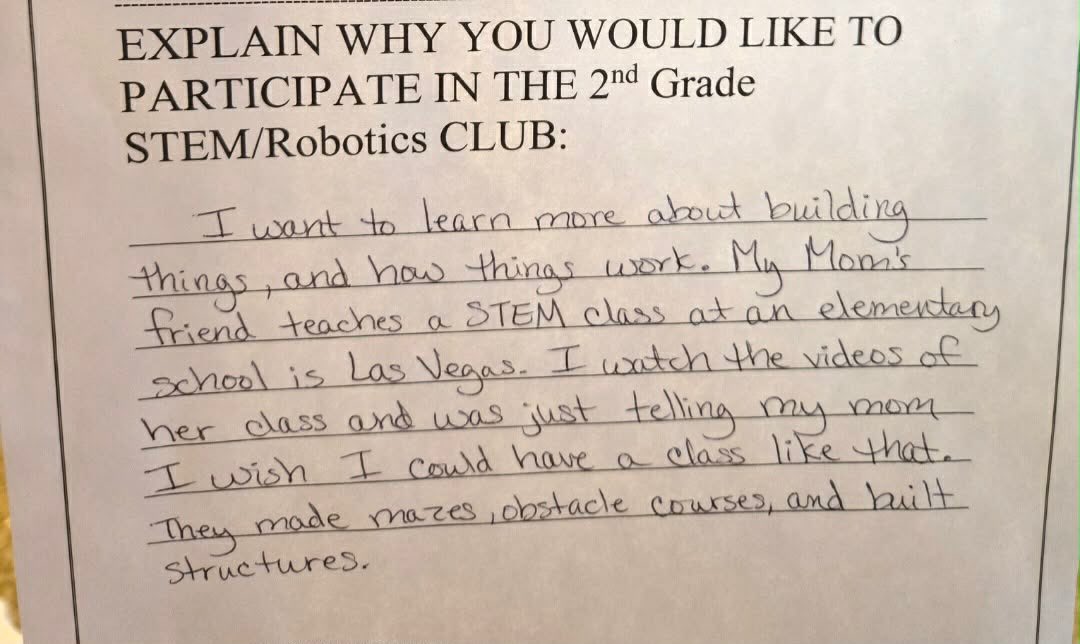 EXPLAIN WHY YOU WOULD LIKE TO
PARTICIPATE IN THE 2nd Grade
STEM/Robotics CLUB:
I want to learn more about building
things, and how things work. My Mom's
friend teaches a STEM class at an elementary
school is Las Vegas. I watch the videos of
her class and was just telling my mom
I wish I could have a class like that.
They made mazes, obstacle courses, and built
structures.